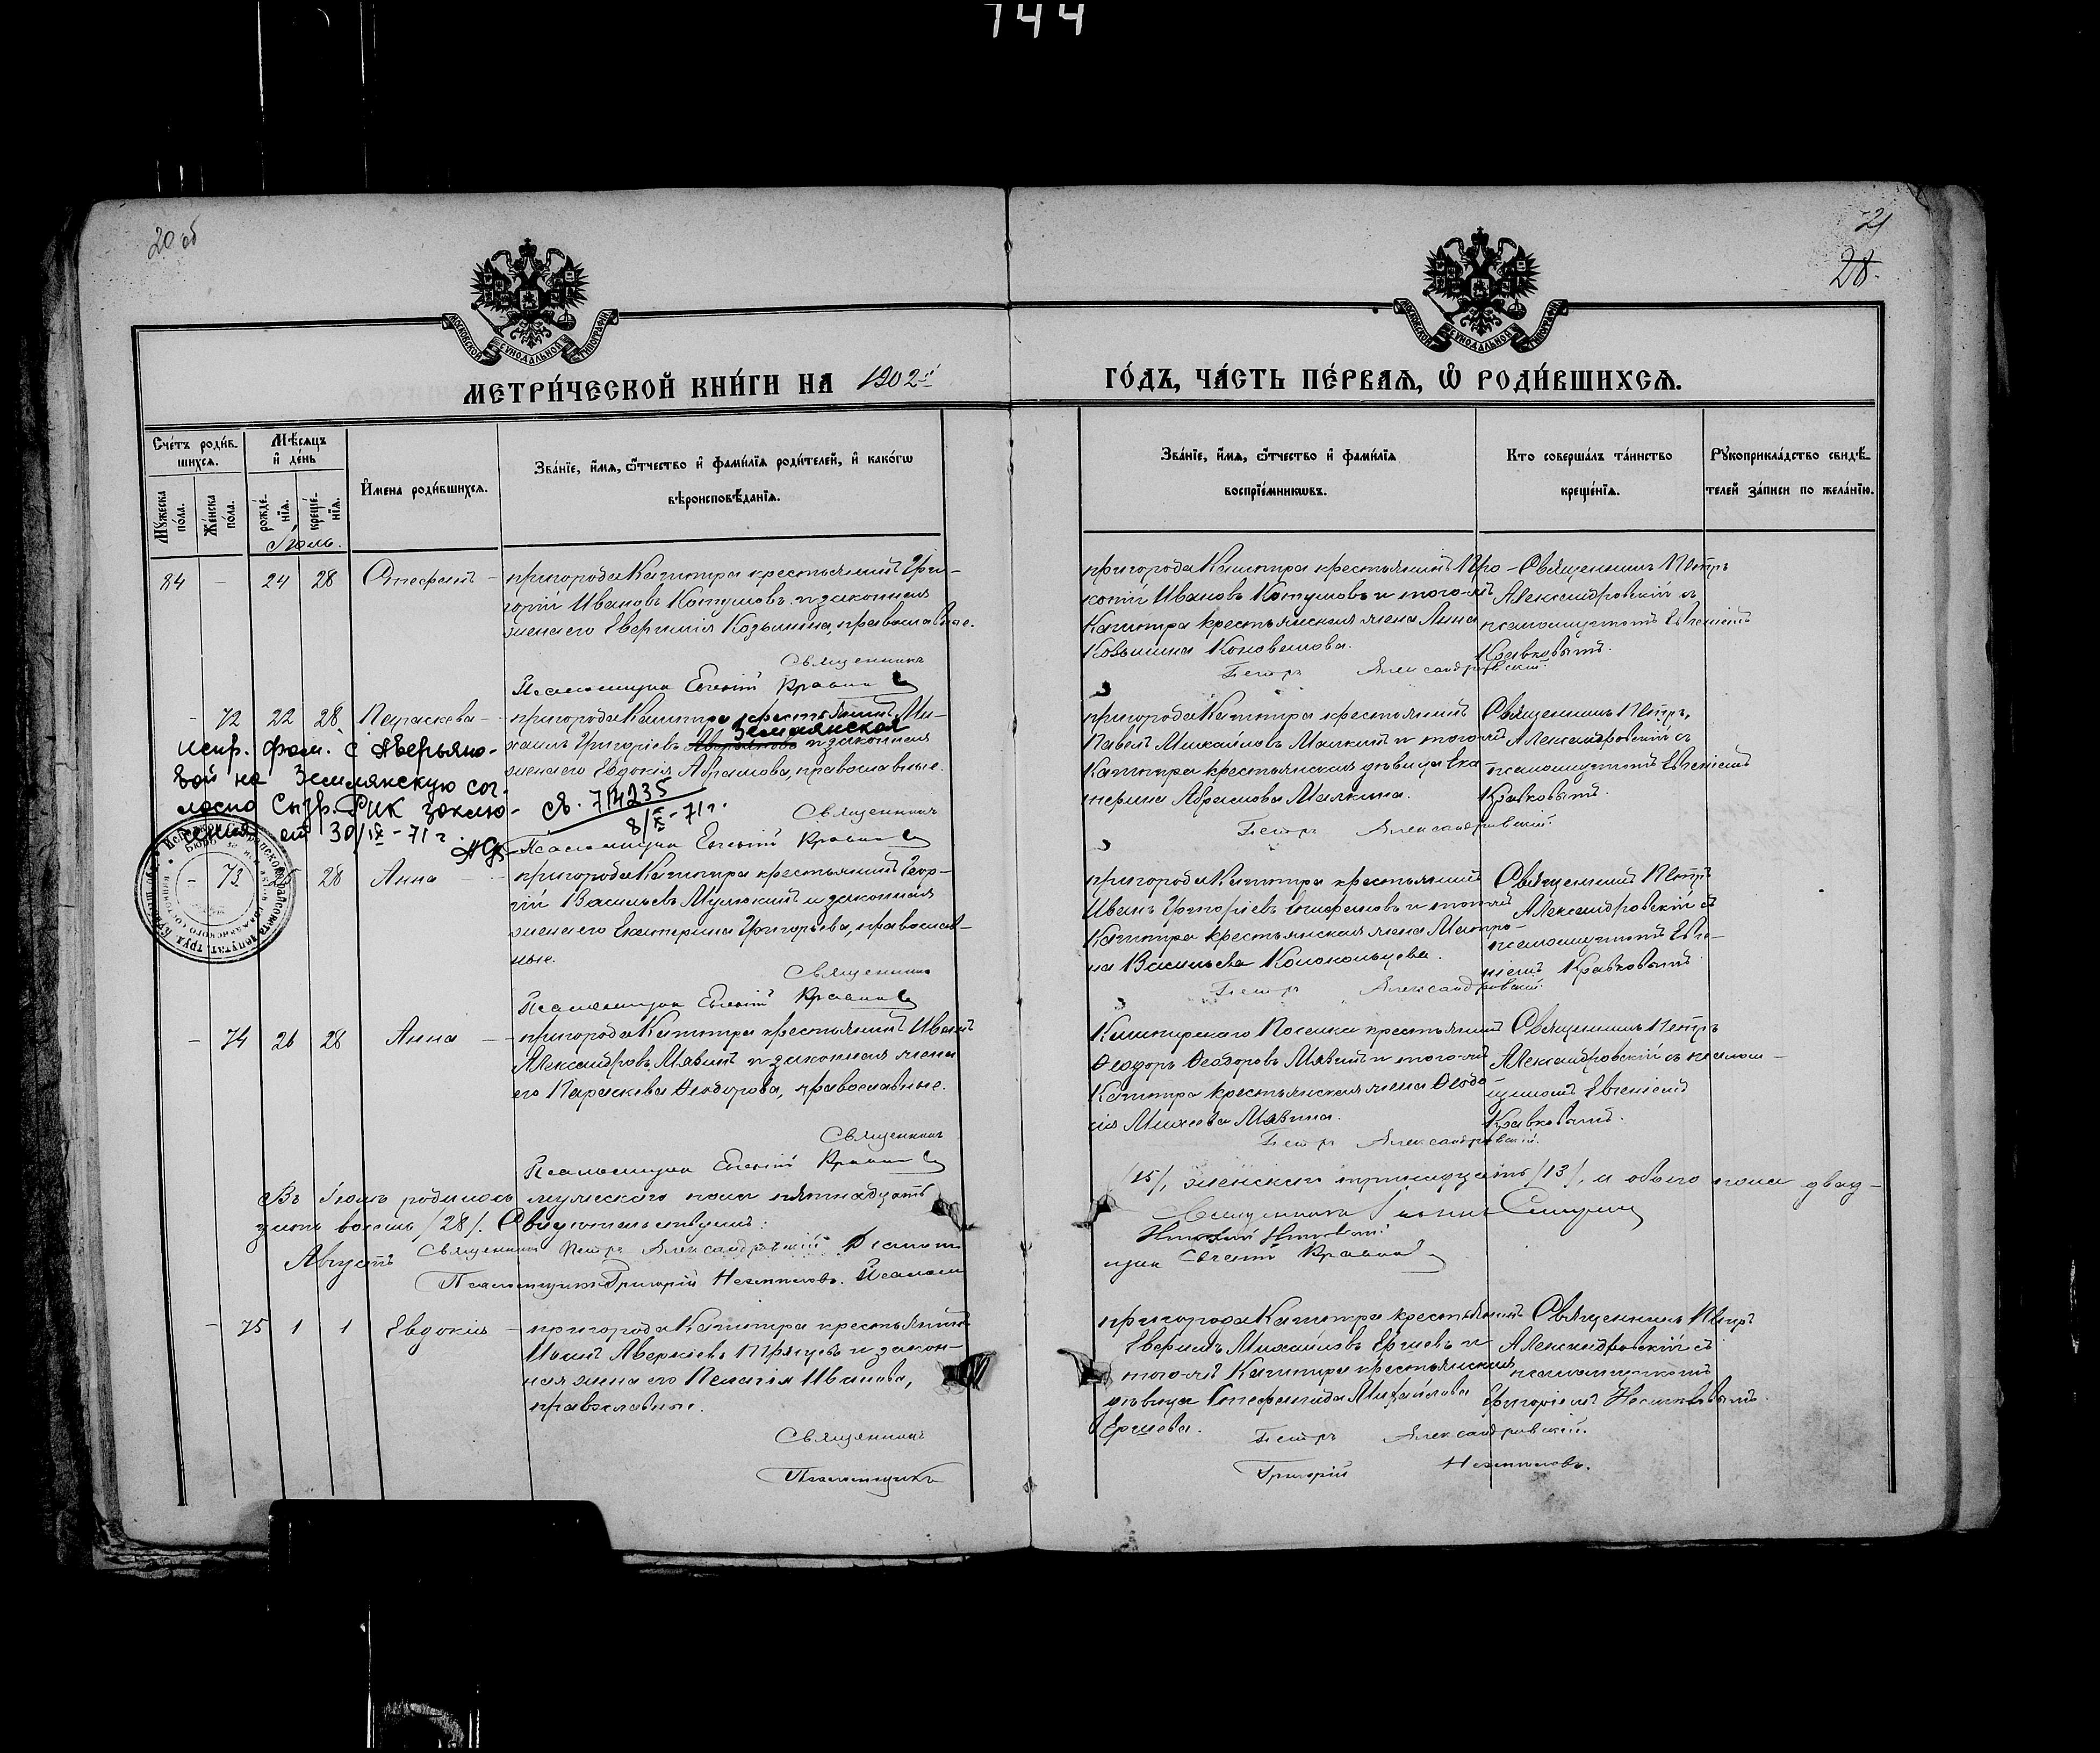 744
20 об
21
28.
МОСКОВСКОЙ СѴНОДАЛЬНОЙ ТИПОГРАФІИ
МОСКОВСКОЙ СѴНОДАЛЬНОЙ ТИПОГРАФІИ
МЕТРИ́ЧЕСКОЙ КНИ́ГИ НА 1902й
ГО́ДЪ, ЧА́СТЬ ПЕ́РВАѦ, Ѽ РОДИ́ВШИХСѦ.
Сче́тъ роди́в-
шихсѧ.
Мꙋ́жеска
по́ла.
Же́нска
по́ла.
Мѣ́сѧцъ
и҆ де́нь
рожде́-
нїѧ.
креще́-
нїѧ.
Іюль.
И҆мена роди́вшихсѧ.
Зва́нїе, и҆́мѧ, ѻ҆́тчество и҆ фами́лїѧ роди́телей, и҆ како́гѡ
вѣроисповѣ́данїѧ.
Зва́нїе, и҆́мѧ, ѻ҆́тчество и҆ фами́лїѧ
воспрїе́мникѡвъ.
Кто соверша́лъ та́инство
креще́нїѧ.
Рꙋкоприкла́дство свидѣ́-
телей за́писи по жела́нїю.
84 - 24 28 Стефанъ - пригорода Кашпира крестьянинъ Гри-
горій Ивановъ Котумовъ и законная
жена его Евфимія Козьмина, православные.
Священникъ
Псаломщик Евгеній Кравков
пригорода Кашпира крестьянинъ Про-
копій Ивановъ Котумовъ и того-же
Кашпира крестьянская жена Анна
Козьмина Коновалова.
Петръ Александровскій.
Священникъ Петръ
Александровскій съ
псаломщикомъ Евгеніемъ
Кравковымъ.
- 72 22 28 Параскева - пригорода Кашпира крестьянинъ Ми-
Землянская
хаилъ Григоріевъ Аверьяновъ и законная
жена его Евдокія Абрамова, православные.
Священникъ
Псаломщик Евгеній Кравков
испр. фам. с Аверьяно-
вой на Землянскую сог-
ласно Сызр. РИК заклю-
чения от 30/IX-71 г
св. 714235
8/X-71 г.
пригорода Кашпира крестьянинъ
Павелъ Михайловъ Малкинъ и того-же
Кашпира крестьянская дѣвица Ека
терина Абрамова Малкина.
Петръ Александровскій.
Священникъ Петръ
Александровскій съ
псаломщикомъ Евгеніемъ
Кравковымъ.
- 73 25 28 Анна - пригорода Кашпира крестьянинъ Геор-
гій Васильевъ Мулюкинъ и законная
жена его Екатерина Григорьева, православ-
ные.
Священникъ
Псаломщик Евгеній Кравков
пригорода Кашпира крестьянинъ
Иванъ Григоріевъ Епифановъ и того-же
Кашпира крестьянская жена Матро-
на Васильева Колокольцева.
Петръ Александровскій.
Священникъ Петръ
Александровскій съ
псаломщикомъ Евге-
ніемъ Кравковымъ.
- 74 26 28 Анна - пригорода Кашпира крестьянинъ Иванъ
Александровъ Мявинъ и законная жена
его Параскева Ѳеодорова, православные.
Священникъ
Псаломщик Евгеній Кравков
Кашпирскаго Поселка крестьянинъ
Ѳеодоръ Ѳеодоровъ Мявинъ и того-же
Кашпира крестьянская жена Ѳеодо-
сія Михеева Мявина.
Петръ Александровскій.
Священникъ Петръ
Александровскій съ псалом-
щикомъ Евгеніемъ
Кравковымъ.
Въ Іюлѣ родилось мужескаго пола пятнадцать
/15/, женскаго тринадцать /13/, и обоего пола двад-
цать восемь /28/. Свидѣтельствуемъ:
Священникъ Петръ Александровскій
Псаломщикъ Григорій
Псалом
щик Евгеній Кравков
Августъ
- 75 1 1 Евдокія - пригорода Кашпира крестьянинъ
Иванъ Аверкіевъ Прянцевъ и закон-
ная жена его Пелагія Иванова,
православные.
Священникъ
Псаломщикъ
пригорода Кашпира крестьянинъ
Михайловъ Ершовъ и
того-же Кашпира крестьянская
дѣвица Стефанида Михайлова
Ершова.
Петръ Александровскій.
Григорій
Священникъ Петръ
Александровскій съ
псаломщикомъ
Григоріемъ